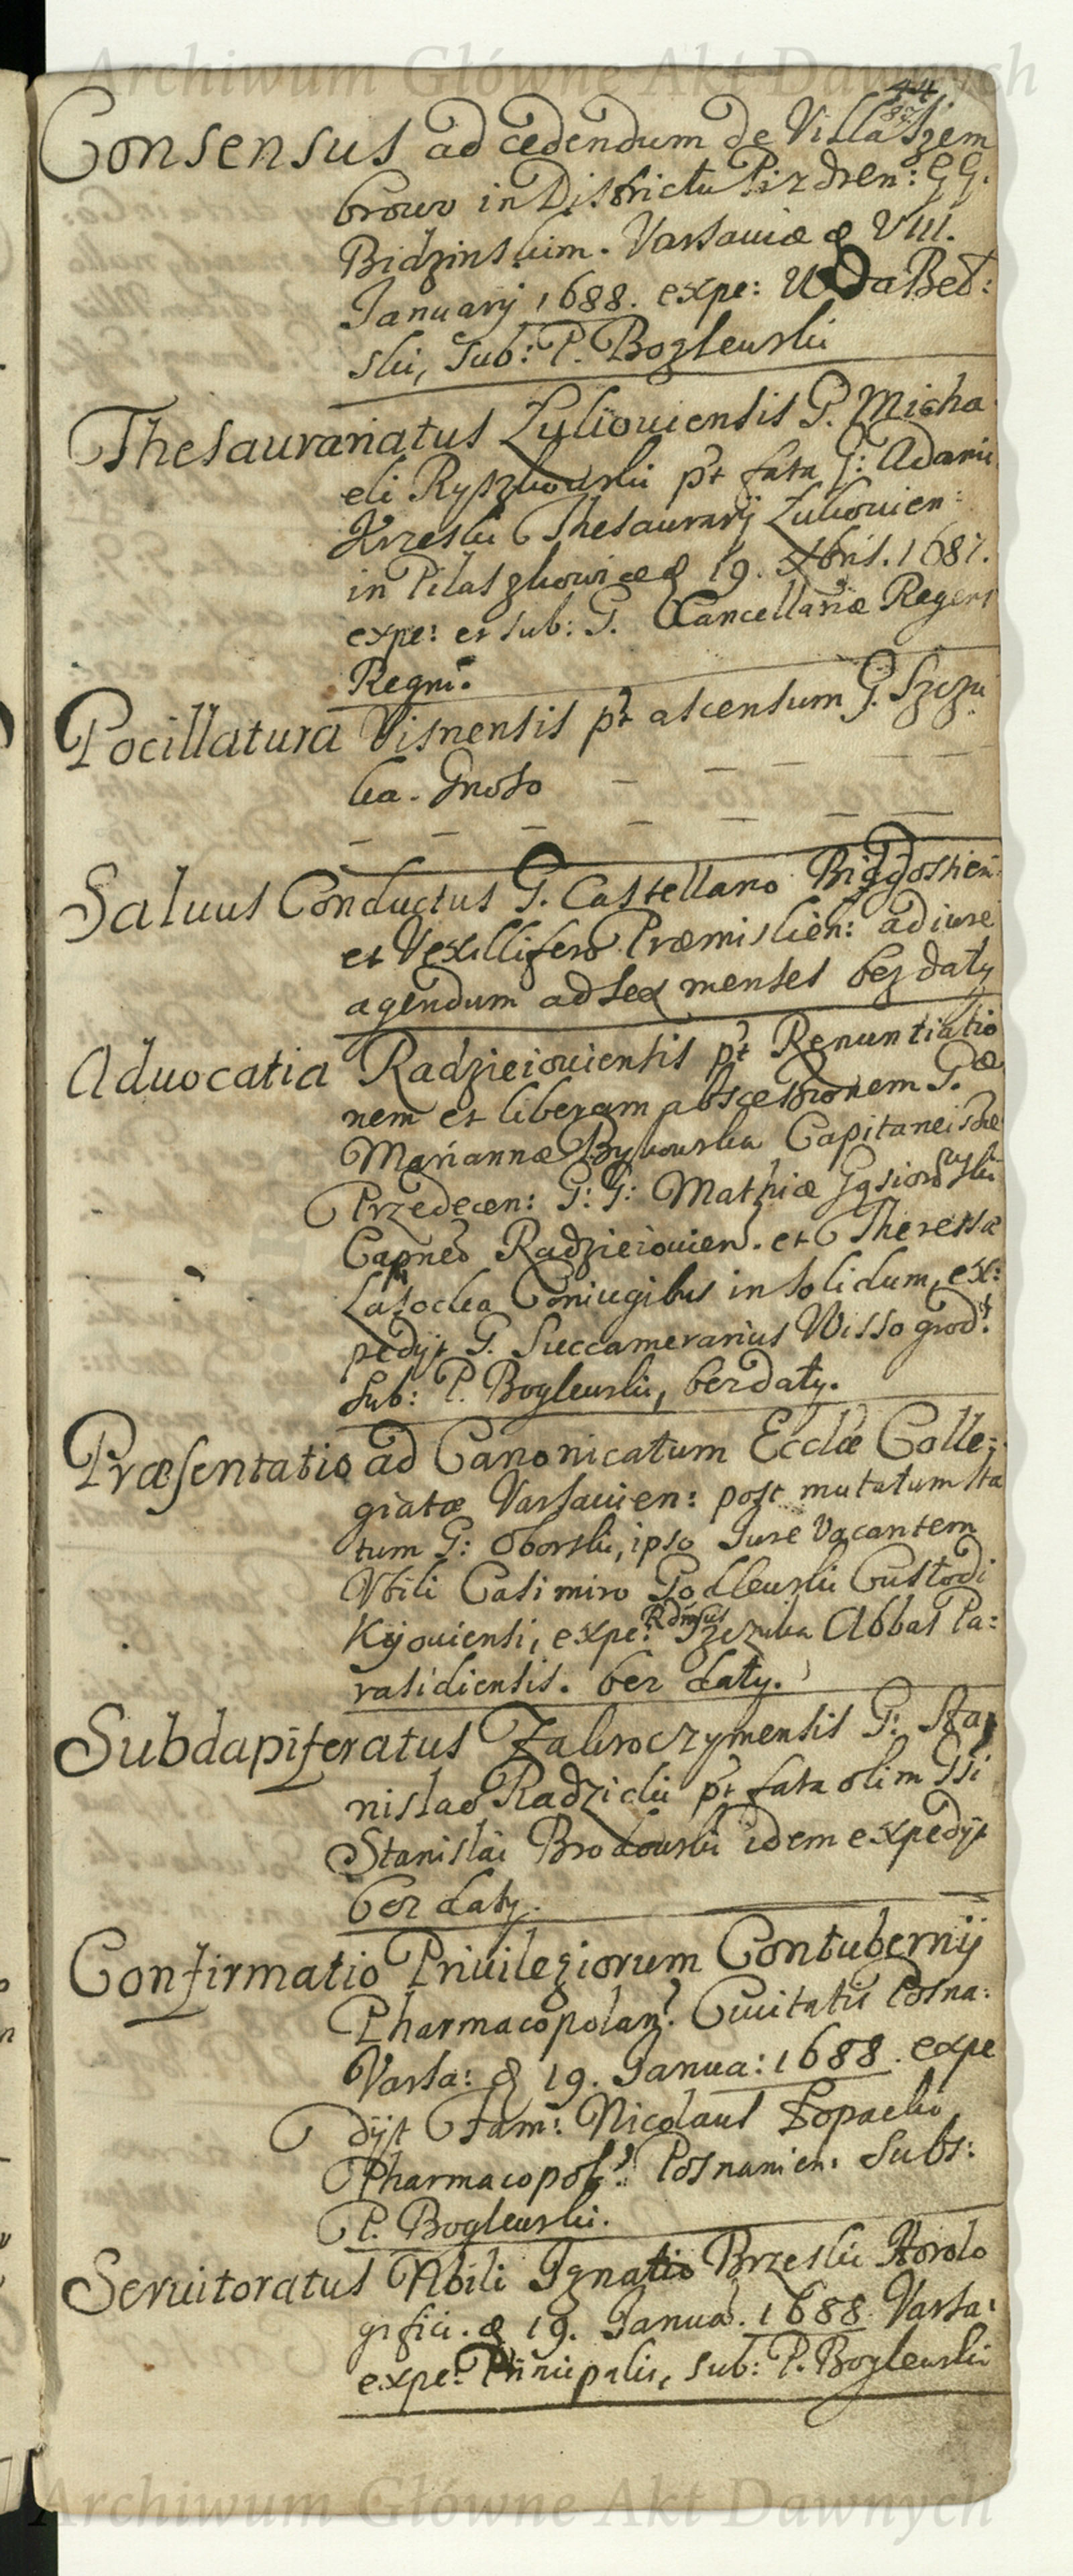 Archiwum Główne Akt Dawnych
44
87
Consensus ad cedendum de Villa Szem
browo in Districtu Pizdren: GG.
Bidzinskim. Varsaviæ d VIII.
Januarij 1688. expe: Da Bet:
ski, sub: P. Boglewski
Thesaurariatus Lukoviensis G. Micha
eli Ryszkowski pt fata G: Adami
Krzeski Thesaurarij Lukovien:
in Pilaszkowice d 19. Xbris. 1687.
expe: et sub: G. Cancellariæ Regens
Regni.
Pocillatura Visnensis pt ascensum G. Szczu
ka. Gnoso
Saluus Conductus G. Castellano Bidgostien:
et Vexillifero Præmislien: ad iure
agendum ad sex menses bez daty
Aduocatia Radzieiouiensis pt Renuntiatio
nem et liberam abscessionem G. æ
Mariannæ Bykowska Capitaneissæ
Przedecen: G: G: Mathiæ Gąsiorowski
Capneo Radzieiouien. et Theressæ
Lasocka Coniugibus in solidum, ex:
pedijt G. Succamerarius Wissogrod:
sub: P. Boglewski, bez daty.
Præsentatio ad Canonicatum Ecclæ Colle:
giatæ Varsauien: post mutatum sta
tum G: Oborski, ipso Jure Vacantem
Nbili Casimiro Godlewski Custodi
Kijouiensi, expe: Rdmsus Szczuka Abbas Pa:
radidiensis. bez daty.
Subdapiferatus Zakroczymensis G: Sta
nislao Radzicki pt fata olim Gsi
Stanislai Brodowski idem expedijt
bez daty.
Confirmatio Priuilegiorum Contubernij
Pharmacopolar. Ciuitatis Posna:
Varsa: d 19. Janua: 1688. expe
dijt Fam: Nicolaus Lopacki
Pharmacopol: Posnanien: Subs:
P. Boglewski.
Seruitoratus Nbili Ignatio Brzeski Horolo
gifici. d 19. Janua. 1688 Varsa:
expe: Principalis, sub: P. Boglewski
Archiwum Główne Akt Dawnych